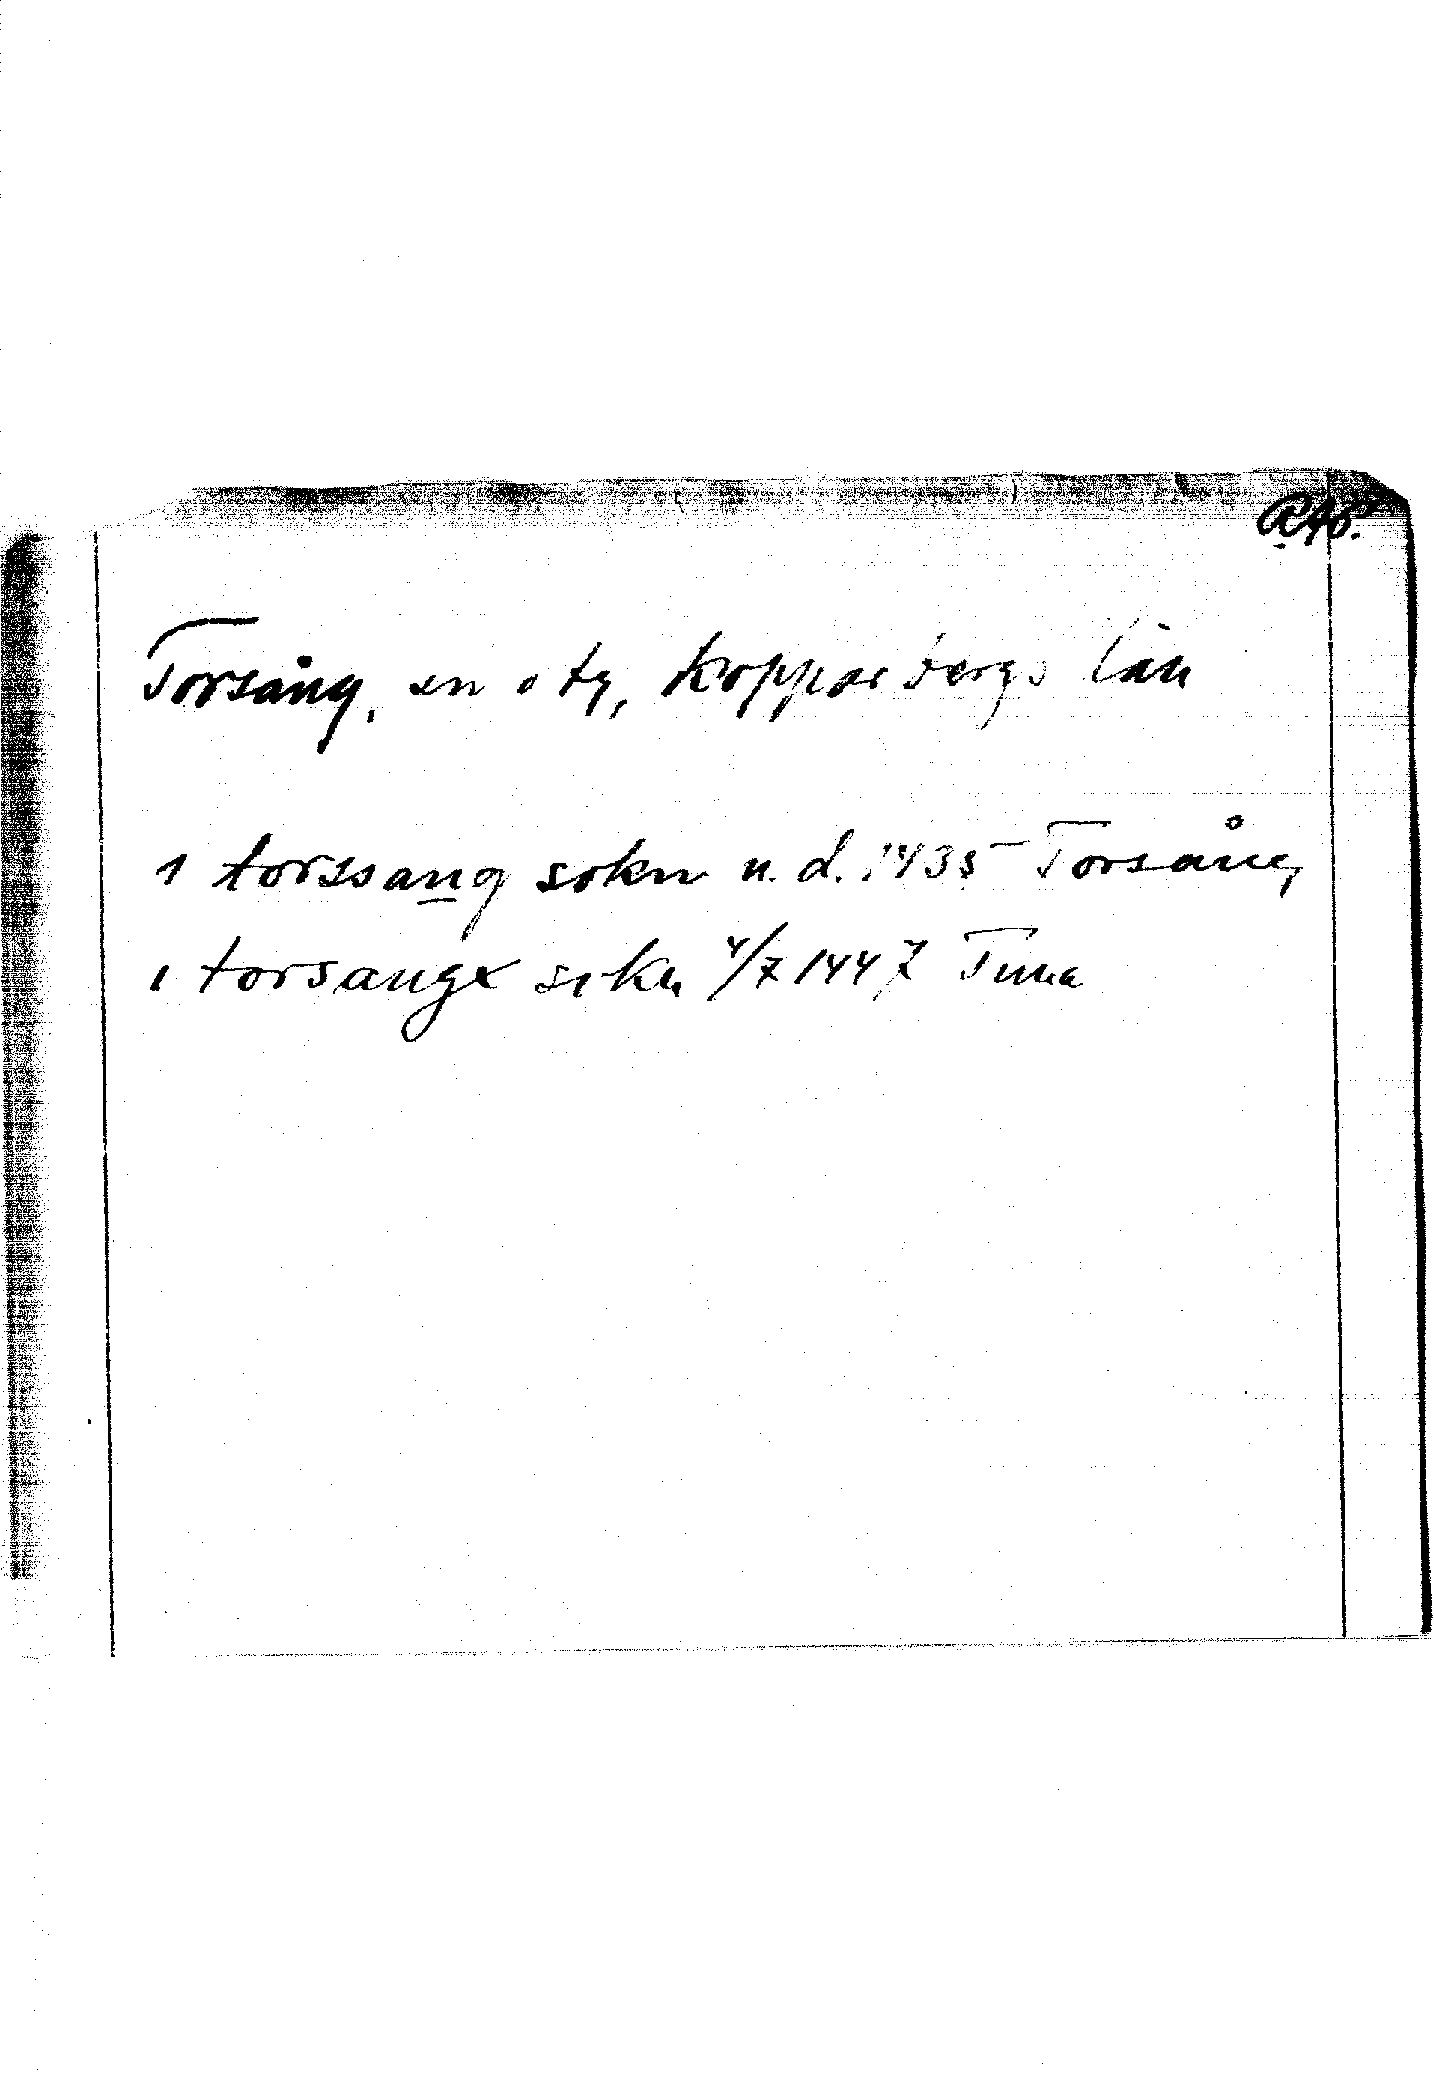 RAp.
Torsång, sn o tg, Kopparbergs län
i torssang sokn u. d. 1435 Torsång
i torsangx sokn 4/7 1447 Tuna